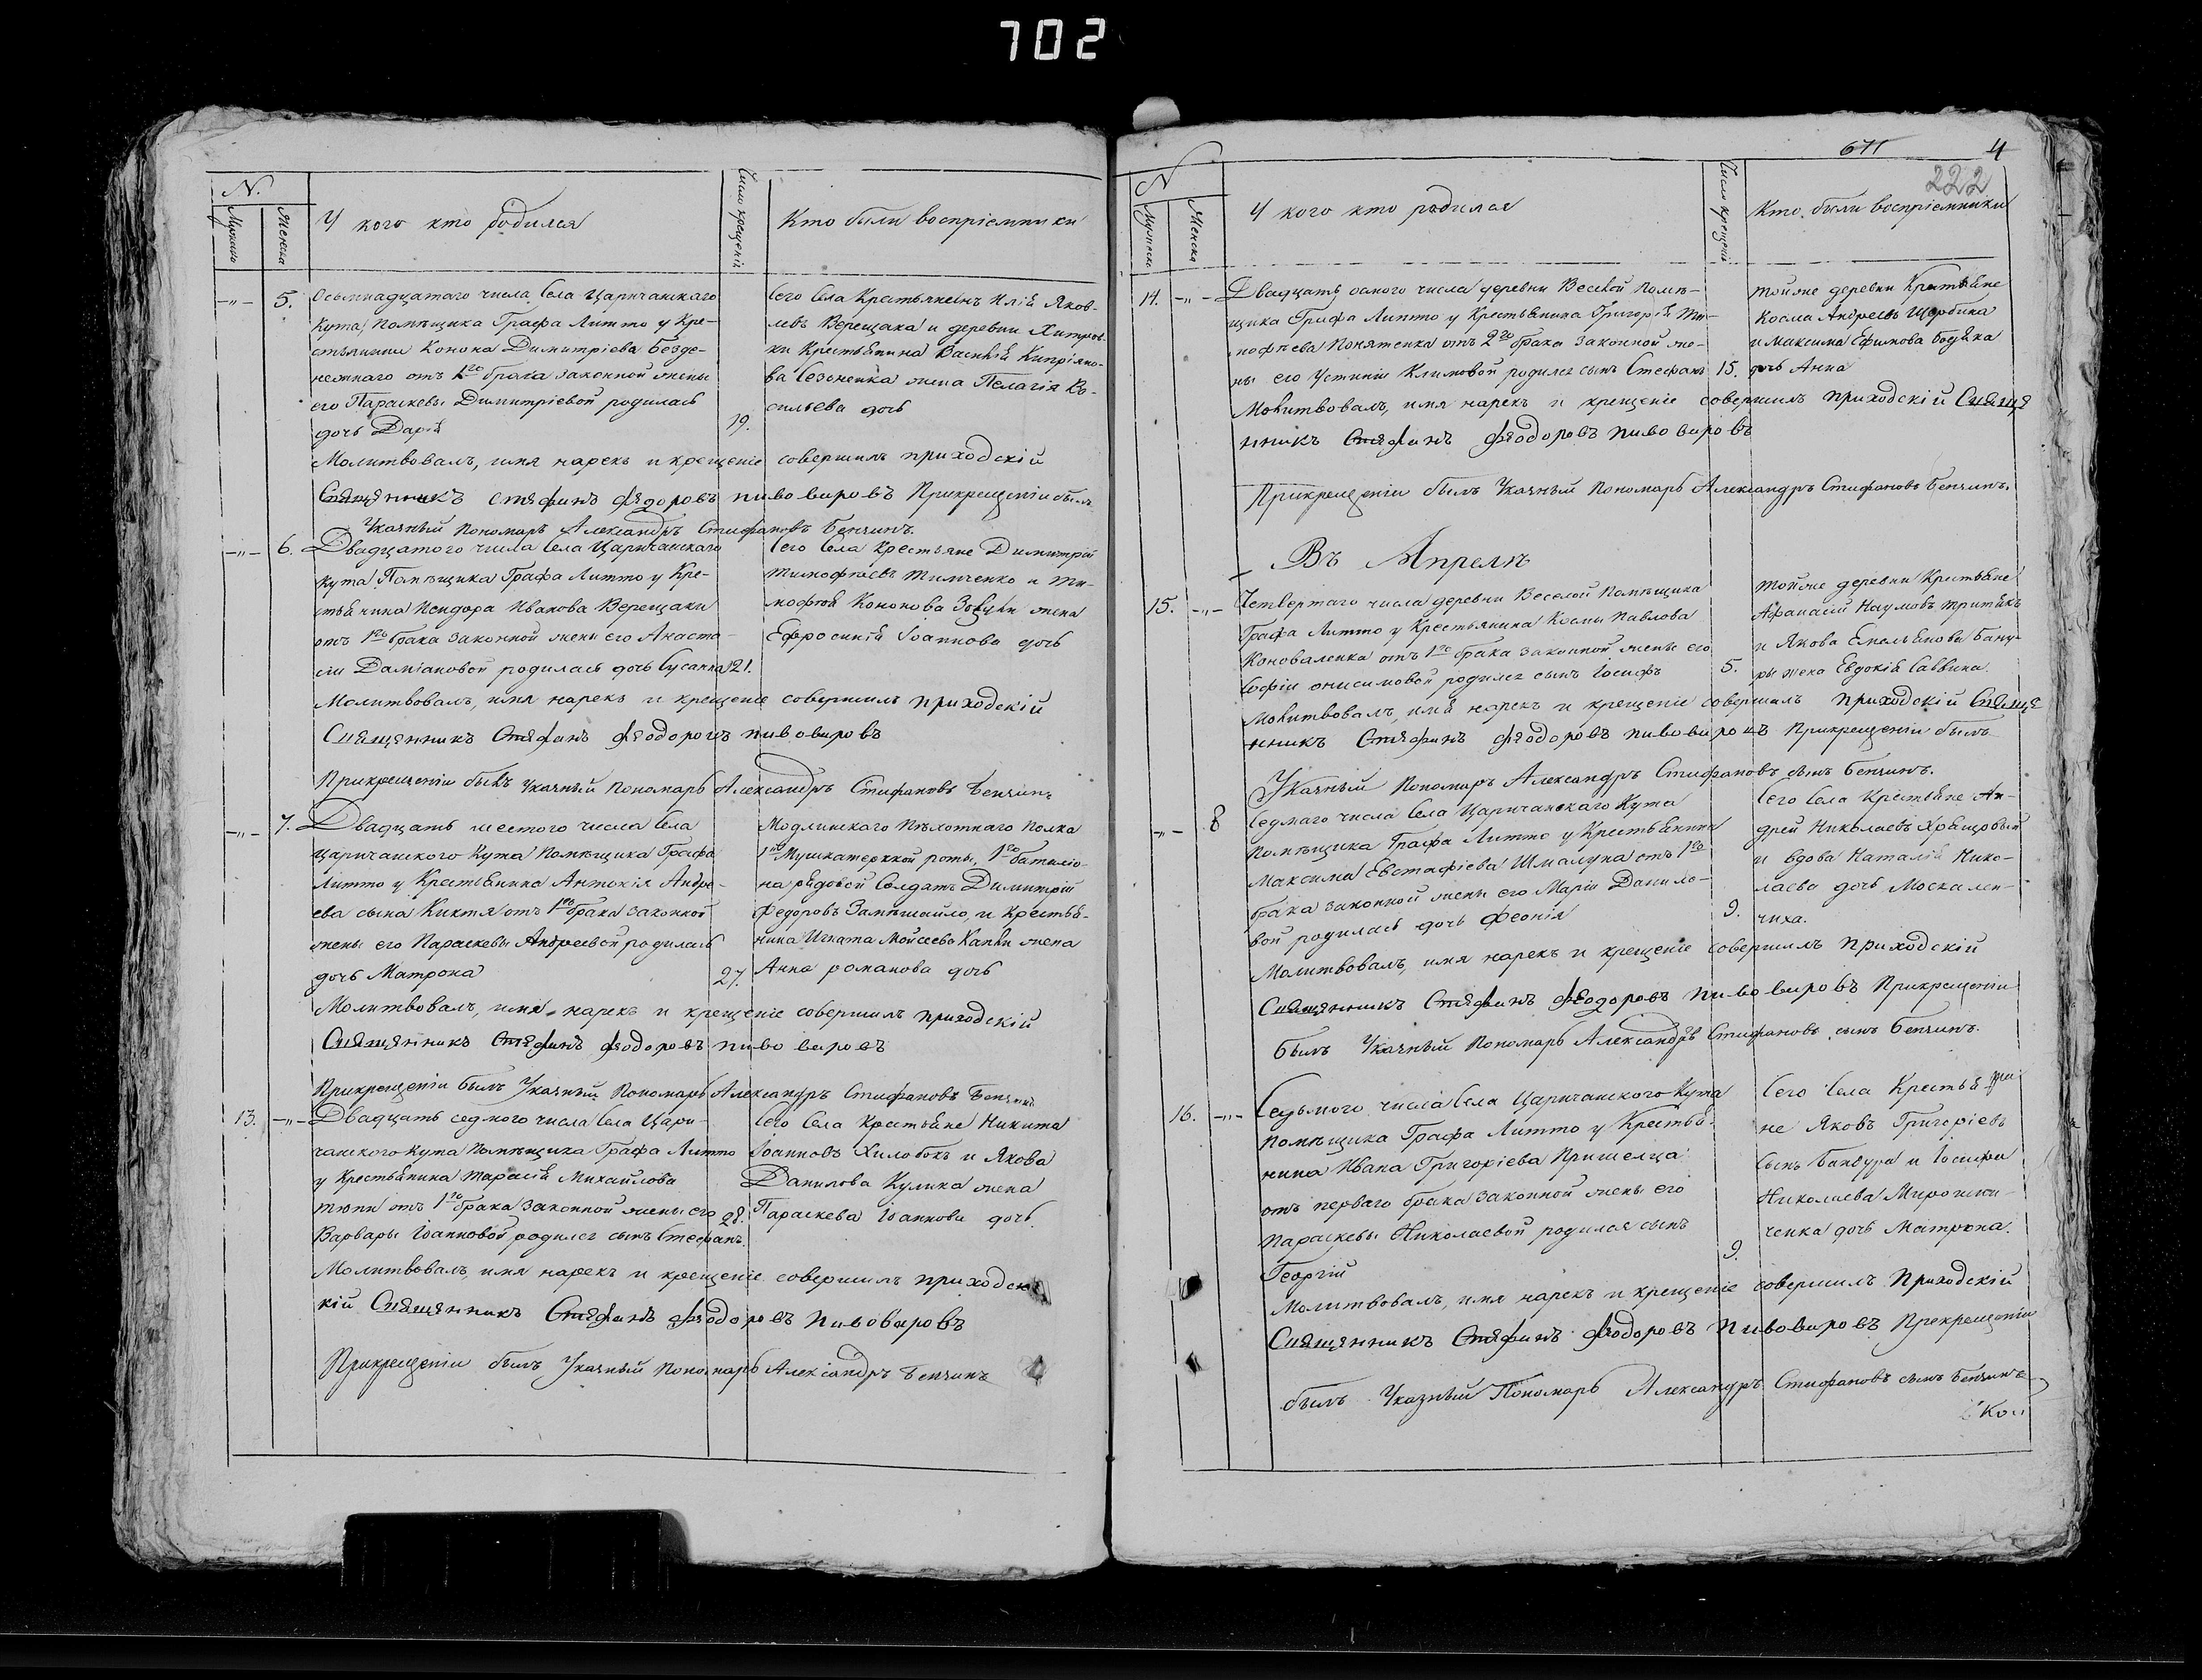 702
N.
Мужеска
Женска
У кого кто родился
Число крещенія
Кто были воспріемники
5.
Осьмнадцатаго числа Села Царичанскаго
Кута Помѣщика Графа Литто у Кре-
стьянина Конона Димитріева Безде-
нежнаго отъ 1го брака законной жены
его Параскевы Димитріевой родилась
дочь Дарія
19.
Сего Села Крестьянинъ Илія Яков-
левъ Верещака и деревни
ки Крестьянина Василія Кипріяно-
ва жена Пелагія Ва-
сильева дочь
Молитвовалъ, имя нарекъ и крещеніе совершилъ приходскій
Священникъ Стефанъ Феодоровъ Пивоваровъ Прикрещеніи былъ
Указный Пономарь Александръ Стифановъ Бенчинъ.
6.
Двадцатого числа Села Царичанскаго
Кута Помѣщика Графа Литто у Кре-
стьянина Исидора Иванова Верещаки
отъ 1го брака законной жены его Анаста-
сіи Даміановой родилась дочь Сусанна
21.
Сего Села Крестьяне Димитрій
Тимофѣевъ Тимченко и Ти-
мофѣя Кононова жена
Ефросинія Іоаннова дочь
Молитвовалъ, имя нарекъ и крещеніе совершилъ приходскій
Священникъ Стефанъ Феодоровъ Пивоваровъ
Прикрещеніи былъ Указный Пономарь Александръ Стифановъ Бенчинъ
7.
Двадцать шестого числа Села
Царичанского Кута Помѣщика Графа
Литто у Крестьянина Антонія Андре-
ева сына Киктя отъ 1го брака законной
жены его Параскевы Андреевой родилась
дочь Матрона
27.
Модлинскаго Пѣхотнаго Полка
1й Мушкатерской роты, 1го баталіо-
на рядовой Солдатъ Димитрій
Федоровъ Замѣшайло, и Крестья-
нина Игната Мойсеева Капки жена
Анна романова дочь
Молитвовалъ, имя нарекъ и крещеніе совершилъ приходскій
Священникъ Стефанъ Феодоровъ Пивоваровъ
Прикрещеніи былъ Указный Пономарь Александръ Стифановъ Бенчинъ
13.
Двадцать седмого числа Села Цари-
чанского Кута Помѣщика Графа Литто
у Крестьянина Тарасія Михайлова
Тюпи отъ 1го брака законной жены его
Варвары Іоанновой родился сынъ Стефанъ.
28.
Сего Села Крестьяне Никита
Іоанновъ Хилобокъ и Якова
Данилова Кулика жена
Параскева Іоаннова дочь.
Молитвовалъ, имя нарекъ и крещеніе совершилъ приходс
кій Священникъ Стефанъ Феодоровъ Пивоваровъ
Прикрещеніи былъ Указный Пономарь Александръ Бенчинъ
671
4
222
N
Мужеска
Женска
У кого кто родился
Число крещенія
Кто были воспріемники
14.
Двадцать осмого числа деревни Веселой Помѣ-
щика Графа Литто у Крестьянина Григорія Ти-
мофѣева отъ 2го брака законной же-
ны его Устиніи Климовой родился сынъ Стефанъ
15.
Тойже деревни Крестьяне
Косма Андреевъ Щербина
и Максима Ефимова
дочь Анна
Молитвовалъ, имя нарекъ и крещеніе совершилъ приходскій Свяще
нникъ Стефанъ Феодоровъ Пивоваровъ
Прикрещеніи былъ Указный Пономарь Александръ Стифановъ Бенчинъ.
Въ Апрелѣ
15.
Четвертаго числа деревни Веселой Помѣщика
Графа Литто у Крестьянина Космы Павлова
Коноваленка отъ 1го брака законной жены его
Софіи Онисимовой родился сынъ Іосифъ
5.
Тойже деревни Крестьяне
Афанасій Наумовъ Притыка
и Якова Емельянова Банду-
ры жена Евдокія Саввина.
Молитвовалъ, имя нарекъ и крещеніе совершилъ приходскій Свяще
нникъ Стефанъ Феодоровъ Пивоваровъ Прикрещеніи былъ
Указный Пономарь Александръ Стифановъ сынъ Бенчинъ.
8
Седмаго числа Села Царичанскаго Кута
Помѣщика Графа Литто у Крестьянина
Максима Евстафіева Шмалука отъ 1го
брака законной жены его Маріи Данило-
вой родилась дочь Феонія
9.
Сего Села Крестьяне Ан-
дрей Николаевъ Хрящовый
и вдова Наталія Нико-
лаева дочь Москален-
чиха.
Молитвовалъ, имя нарекъ и крещеніе совершилъ приходскій
Священникъ Стефанъ Феодоровъ Пивоваровъ Прикрещеніи
былъ Указный Пономарь Александръ Стифановъ сынъ Бенчинъ.
16.
Седьмого числа Села Царичанского Кута
Помѣщика Графа Литто у Крестья-
нина Ивана Григоріева Пришельца
отъ перваго брака законной жены его
Параскевы Николаевой родился сынъ
Георгій
9.
Сего Села Крестья
не Яковъ Григоріевъ
сынъ Бандура и Іосифа
Николаева Мирошни-
ченка дочь Матрона.
Молитвовалъ, имя нарекъ и крещеніе совершилъ Приходскій
Священникъ Стефанъ Феодоровъ Пивоваровъ Прекрещеніи
былъ Указный Пономарь Александръ Стифановъ сынъ Бенчинъ